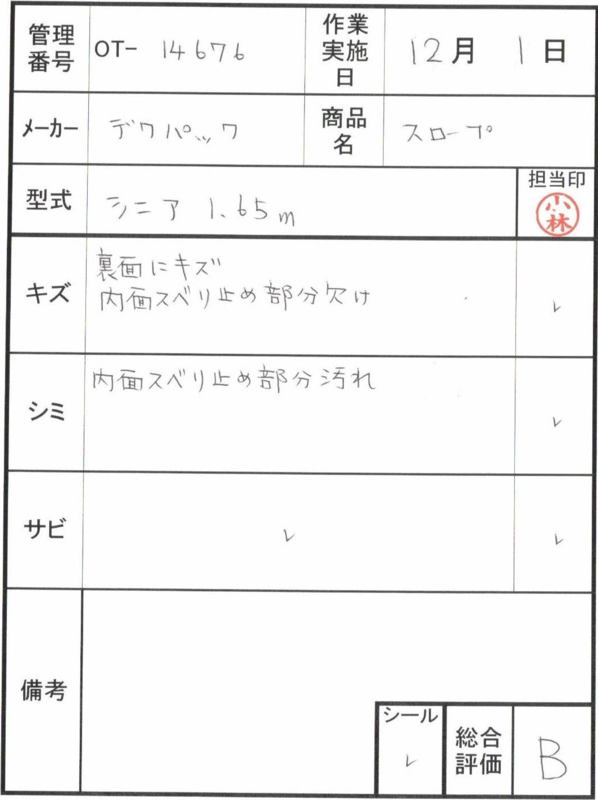 管理番号 OT- 14676 作業実施日 12月 1日
メーカー デクパック 商品名 スロープ
型式 シニア 1.65m 担当印 小林
キズ 裏面にキズ
内面スベリ止め部分欠け ✓
シミ 内面スベリ止め部分汚れ ✓
サビ ✓ ✓
備考
シール ✓ 総合評価 B